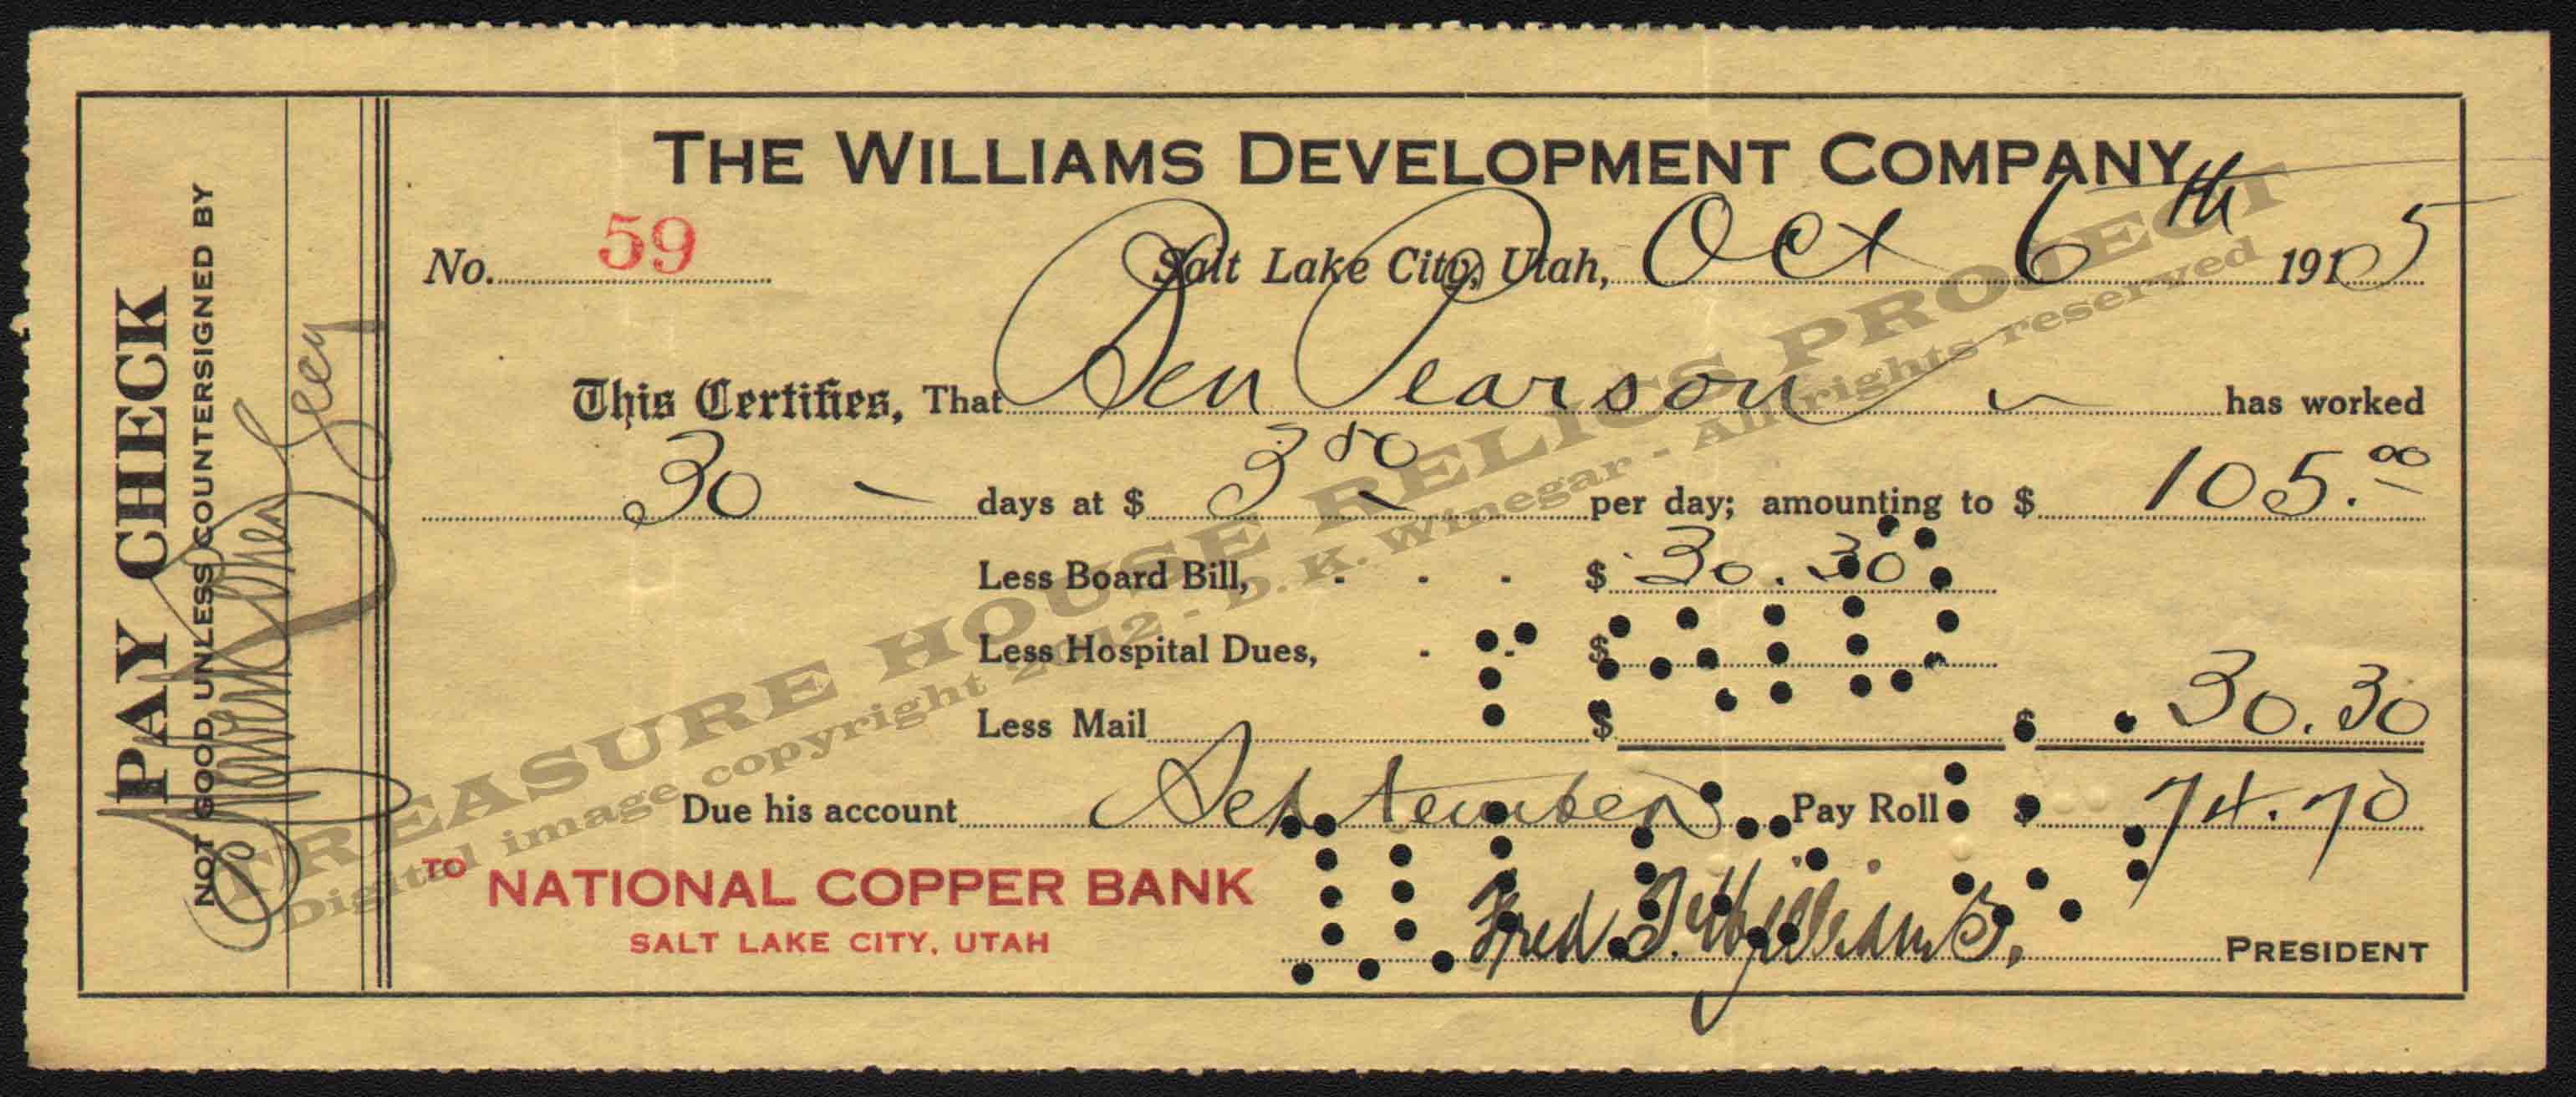 THE WILLIAMS DEVELOPMENT COMPANY
No. 59 Salt Lake City, Utah, Oct 6th 1915
This Certifies, That Ben Pearson has worked
30 — days at $ 3 50 per day; amounting to $ 105.00
Less Board Bill, - - - $ 30.30
Less Hospital Dues, - - $
Less Mail $ $ 30.30
Due his account September Pay Roll $ 74.70
TO NATIONAL COPPER BANK
SALT LAKE CITY, UTAH
Fred J. Williams, PRESIDENT
PAY CHECK
NOT GOOD UNLESS COUNTERSIGNED BY
PAID
TREASURE HOUSE RELICS PROJECT
Digital image copyright 2012 - D. K. Winegar - All rights reserved